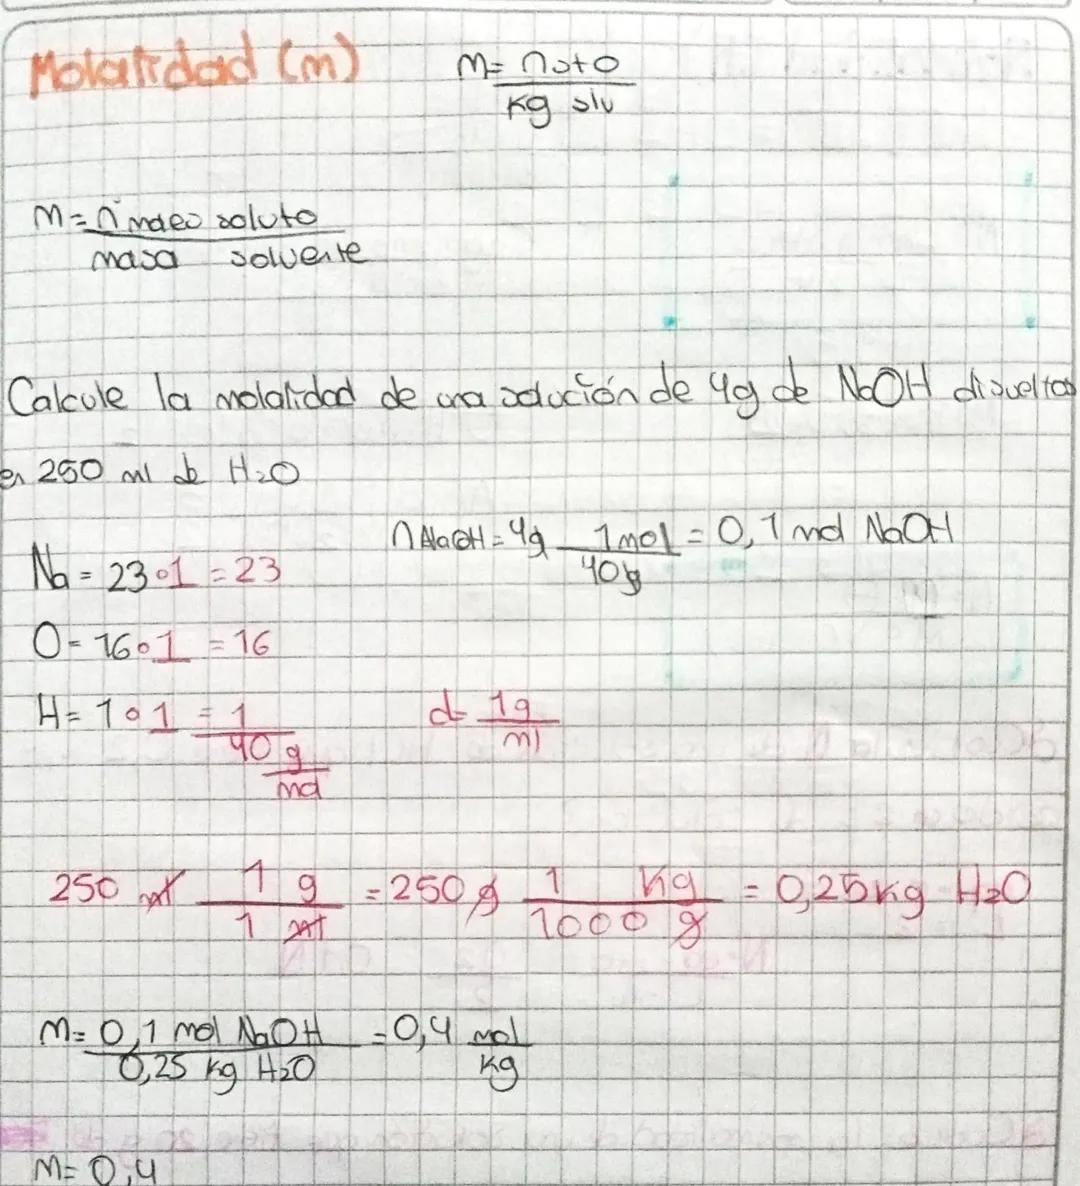 Molalidad (m)
m= n sto
kg slv
m= n° moles soluto
masa solvente
Calcule la molalidad de una solución de 4g de NaOH disueltos
en 250 ml de H2O
n NaOH = 4g 1mol = 0,1 mol NaOH
40g
Na = 23∘1 = 23
O= 16∘1 = 16
H= 1∘1 = 1
40 g
mol
d= 1g
ml
250 ml 1 g = 250 g 1 kg = 0,25kg H2O
1 ml 1000 g
m= 0,1 mol NaOH = 0,4 mol
0,25 kg H2O kg
m= 0,4